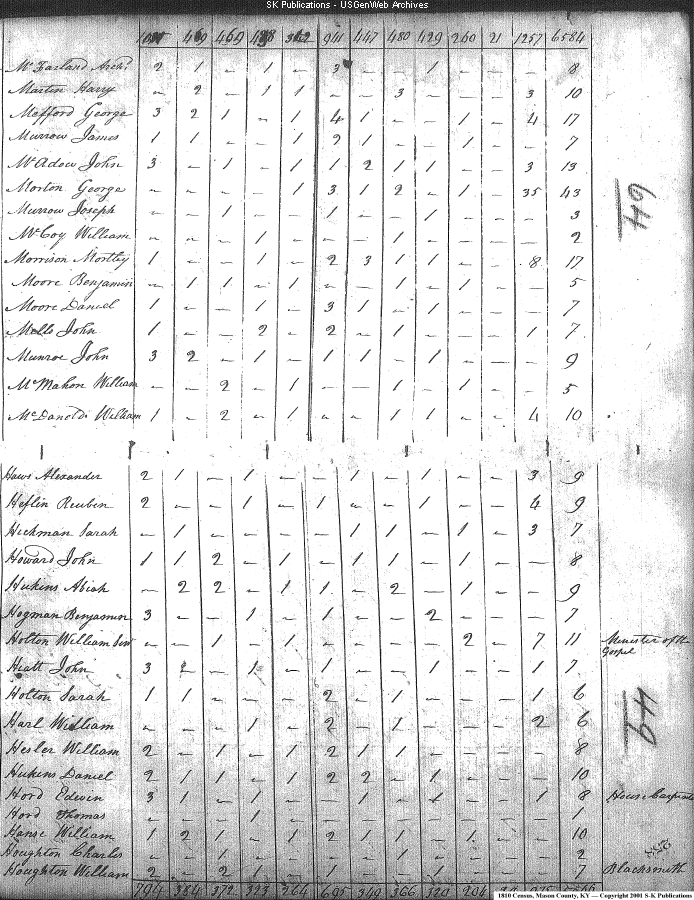 SK Publications - USGenWeb Archives
469 469 488 362 941 447 480 429 260 21 1257 6584
McFarland Archd 2 1 – 1 – 3 – – 1 – – – 8
Martin Harry – 2 – 1 1 – – 3 – – – 3 10
Mefford George 3 2 1 – 1 4 1 – – 1 – 4 17
Murrow James 1 1 – – 1 2 1 – – 1 – – 7
McAdow John 3 – 1 – 1 1 2 1 1 – – 3 13
Morton George – – – – 1 3 1 2 – 1 – 35 43
Murrow Joseph – – 1 – – 1 – – 1 – – – 3
McCoy William – – – 1 – – – 1 – – – – 2
Morrison Mortley 1 – – 1 – 2 3 1 1 – – 8 17
Moore Benjamin – 1 1 – 1 – – 1 – 1 – – 5
Moore Daniel 1 – – 1 – 3 1 – 1 – – – 7
Mells John 1 – – 2 – 2 – 1 – – – 1 7
Munroe John 3 2 – 1 – 1 1 – 1 – – – 9
McMahon William – – 2 – 1 – – 1 – 1 – – 5
McDanold William 1 – 2 – 1 – – 1 1 – – 4 10
Haws Alexander 2 1 – 1 – – 1 – 1 – – 3 9
Heflin Reuben 2 – – 1 – 1 – – 1 – – 4 9
Hickman Sarah – 1 – – – – 1 1 – 1 – 3 7
Howard John 1 1 2 – 1 – 1 1 – 1 – – 8
Hukins Abiah – 2 2 – 1 1 – 2 – 1 – – 9
Hogman Benjamin 3 – – 1 – 1 – – 2 – – – 7
Holton William sen – – 1 – 1 – – – – 2 – 7 11 Minister of the
Gospel
Hiatt John 3 – 1 – 1 – – 1 – – 1 7
Holton Sarah 1 1 – – – 2 – 1 – – – 1 6
Harl William – – – 1 – 2 – 1 – – – 2 6
Hesler William 2 – 1 – 1 2 1 1 – – – – 8
Hukins Daniel 2 1 1 – 1 2 2 – 1 – – – 10
Hord Edwin 3 1 – 1 – – 1 – 1 – – 1 8 House
Hord Thomas – – – 1 – – – – – – – – 1
Hanse William 1 2 1 – 1 2 1 1 – 1 – – 10
Houghton Charles – – 1 – – – – 1 – – – – 2
Houghton William 2 – 2 1 – 1 – – 1 – – – 7 Blacksmith
794 384 372 323 264 695 349 366 320 204
1810 Census, Mason County, KY — Copyright 2001 S-K Publications